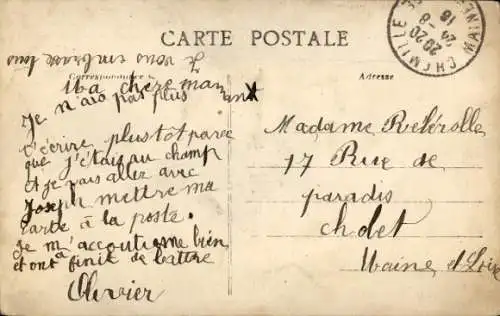 CARTE POSTALE
Je vous embrasse tous
Correspondance
Adresse
CHEMILLÉ
20 20
24 - 8
18
Ma chère maman
Je n'ais pas plus
t'écrire plustôt parce
que j'étais au champ
et je vais allez avec
Joseph mettre ma
carte à la poste.
Je m'accoutume bien
et on a finit de battre
Olivier
Madame
17 Rue de
paradis
cholet
Maine et Loire